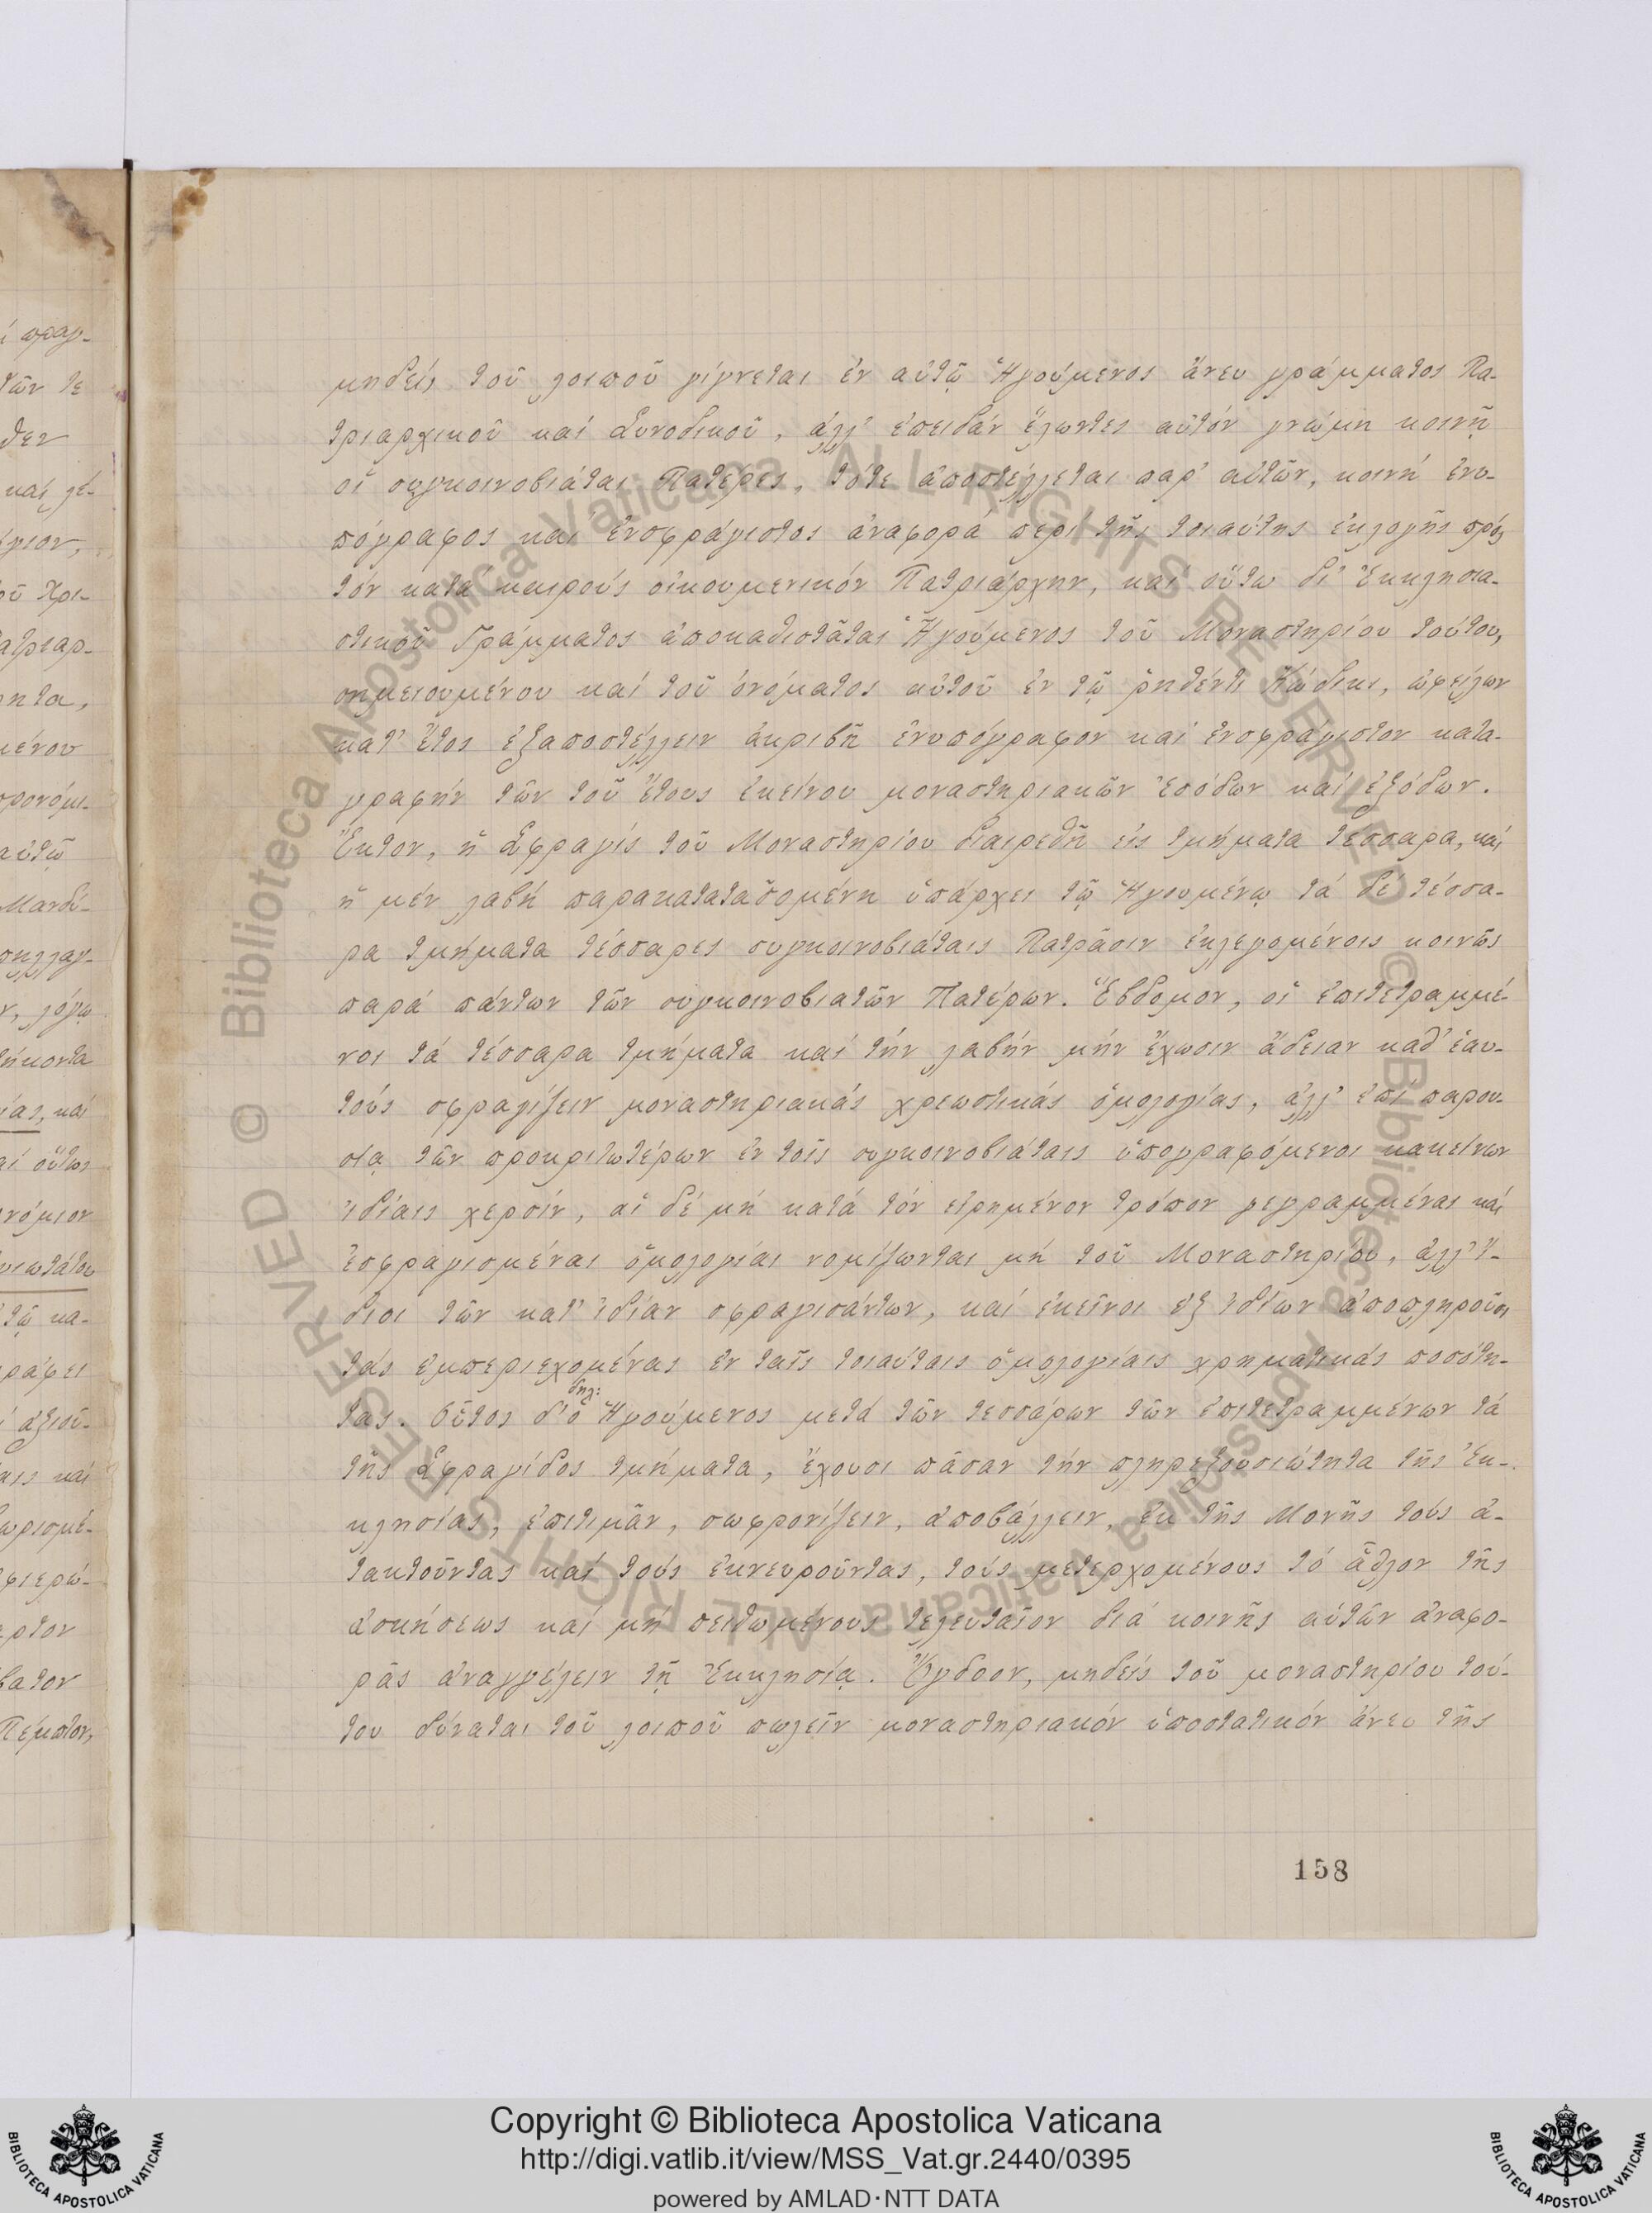 μηδείς τοῦ λοιποῦ γίγνεται ἐν αὐτῷ Ἡγούμενος ἄνευ γράμματος Πα-
τριαρχικοῦ καί Συνοδικοῦ, ἀλλ' ἐπειδάν ἕλωντες αὐτόν γνώμῃ κοινῇ
οἱ συγκοινοβιάται Πατέρες, τότε ἀποστέλλεται παρ' αὐτῶν, κοινή ἐνυ-
πόγραφος καί ἐνσφράγιστος ἀναφορά περί τῆς τοιαύτης ἐκλογῆς πρός
τόν κατά καιρούς οἰκουμενικόν Πατριάρχην, καί οὕτω δι' Ἐκκλησια-
στικοῦ Γράμματος ἀποκαθιστᾶται Ἡγούμενος τοῦ Μοναστηρίου τούτου,
σημειουμένου καί τοῦ ὀνόματος αὐτοῦ ἐν τῷ ῥηθέντι Κώδικι, ὠφείλων
κατ' ἔτος ἐξαποστέλλειν ἀκριβῆ ἐνυπόγραφον καί ἐνσφράγιστον κατα-
γραφήν τῶν τοῦ ἔτους ἐκείνου μοναστηριακῶν ἐσόδων καί ἐξόδων.
Ἕκτον, ἡ Σφραγίς τοῦ Μοναστηρίου διαιρεθῇ εἰς τμήματα τέσσαρα, καί
ἡ μέν λαβή παρακατατασομένη ὑπάρχει τῷ Ἡγουμένῳ τά δέ τέσσα-
ρα τμήματα τέσσαρες συγκοινοβιάταις Πατράσιν ἐκλεγομένοις κοινῶς
παρά πάντων τῶν συγκοινοβιατῶν Πατέρων. Ἕβδομον, οἱ ἐπιτετραμμέ-
νοι τά τέσσαρα τμήματα καί τήν λαβήν μήν ἔχωσιν ἄδειαν καθ' ἑαυ-
τούς σφραγίζειν μοναστηριακάς χρεωστικάς ὁμολογίας, ἀλλ' ἐπί παρου-
σίᾳ τῶν προκριτωτέρων ἐν τοῖς συγκοινοβιάταις ὑπογραφόμενοι κακείνων
ἰδίαις χερσίν, αἱ δέ μή κατά τόν εἰρημένον τρόπον γεγραμμέναι καί
ἐσφραγισμέναι ὁμολογίαι νομίζωνται μή τοῦ Μοναστηρίου, ἀλλ' ἴ-
διοι τῶν κατ' ἰδίαν σφραγισάντων, καί ἐκεῖνοι ἐξ ἰδίων ἀποπληροῦσι
τάς ἐμπεριεχομένας ἐν ταῖς τοιαύταις ὁμολογίαις χρηματικάς ποσότη-
δηλ:
τας. Οὗτος δ' ὁ Ἡγούμενος μετά τῶν τεσσάρων τῶν ἐπιτετραμμένων τά
τῆς Σφραγίδος τμήματα, ἔχουσι πᾶσαν τήν πληρεξουσιώτητα τῆς Ἐκ-
κλησίας, ἐπιτιμᾶν, σωφρονίζειν, ἀποβάλλειν, ἐκ τῆς Μονῆς τούς ἀ-
τακτοῦντας καί τούς ἐκνευροῦντας, τούς μετερχομένους τό ἆθλον τῆς
ἀσκήσεως καί μή πειθωμένους τελευταῖον διά κοινῆς αὐτῶν ἀναφο-
ρᾶς ἀναγγέλειν τῇ Ἐκκλησίᾳ. Ὄγδοον, μηδείς τοῦ μοναστηρίου τού-
του δύναται τοῦ λοιποῦ πωλεῖν μοναστηριακόν ὑποστατικόν ἄνευ τῆς
158
Copyright © Biblioteca Apostolica Vaticana
http://digi.vatlib.it/view/MSS_Vat.gr.2440/0395
powered by AMLAD·NTT DATA